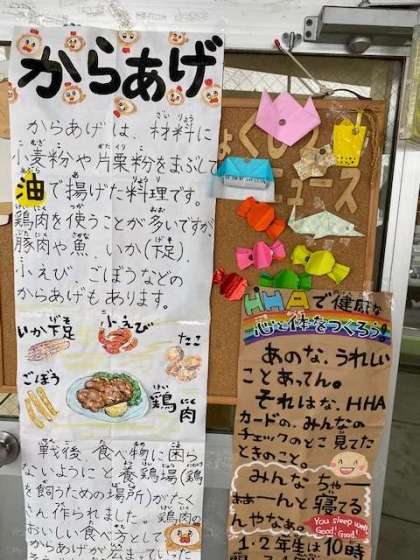 からあげ
からあげは、材料に
小麦粉や片栗粉をまぶして
油で揚げた料理です。
鶏肉を使うことが多いですが
豚肉や魚、いか(下足)、
小えび、ごぼうなどの
からあげもあります。
いか下足
小えび
たこ
ごぼう
鶏肉
戦後、食べ物に困ら
ないようにと養鶏場(鶏
を飼うための場所)がたく
さん作られました。鶏肉の
おいしい食べ方として
からあげが
ょくしつ
ニュース
HHAで健康な
心と体をつくろう!
あのな、うれしい
ことあってん。
それはな、HHA
カードの、みんなの
チェックのとこ見てた
ときのこと。
みんなちゃー
ぁぁーんと寝てる
んやなぁ。
You sleep well.
Good! Good!
1・2年生は 10時